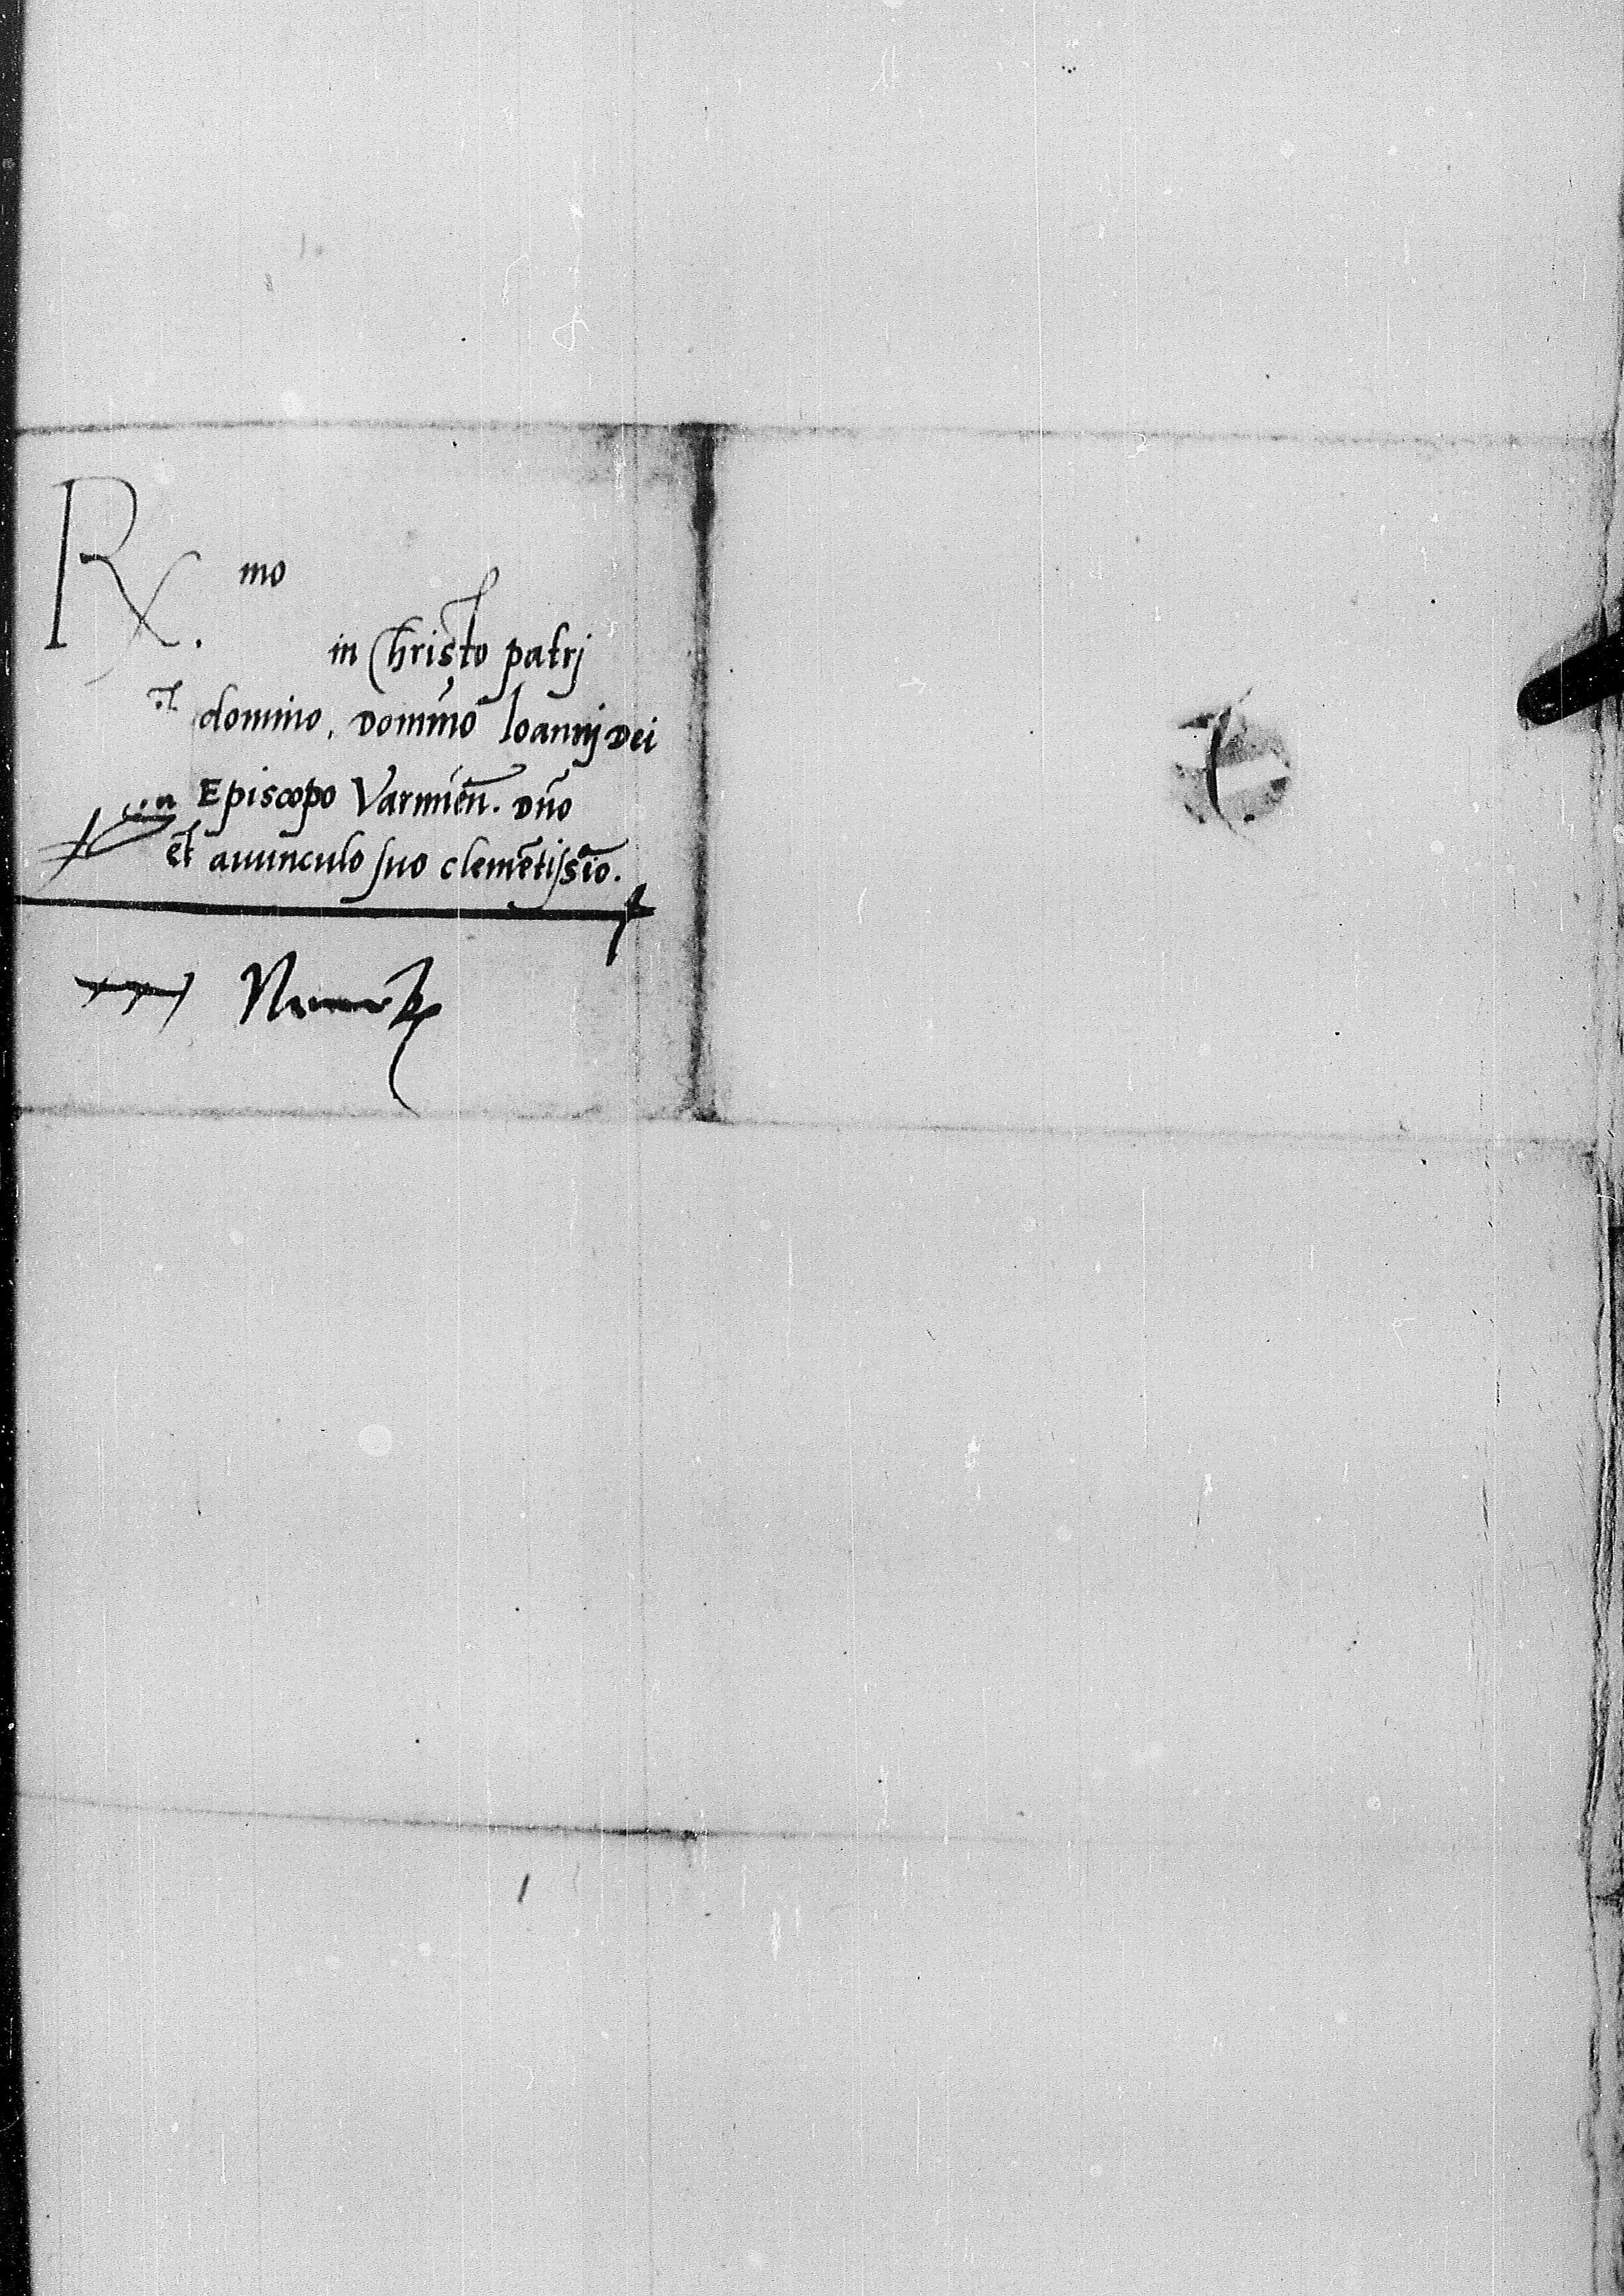 R. mo
in Christo patrj
et domino, Domino Ioannj Dei
gra Episcopo Varmień. Dño
et auunculo suo clemẽtissĩo.